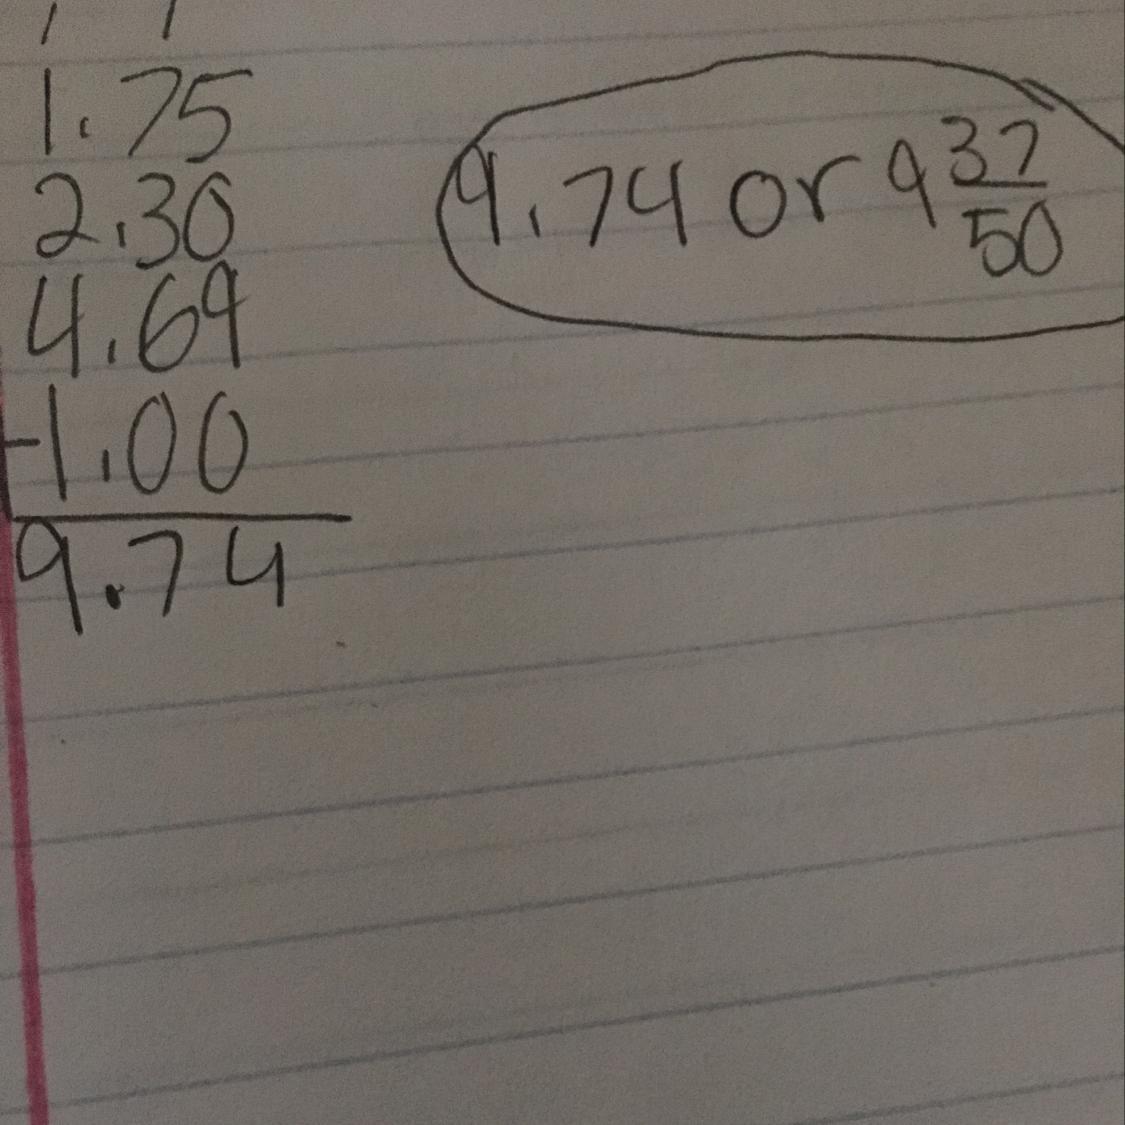 1 1
1.75
2.30
4.69
-1.00
9.74
9.74 or 9 37/50